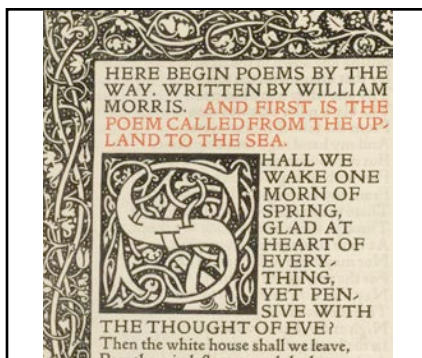 HERE BEGIN POEMS BY THE
WAY. WRITTEN BY WILLIAM
MORRIS. AND FIRST IS THE
POEM CALLED FROM THE UP-
LAND TO THE SEA.
SHALL WE
WAKE ONE
MORN OF
SPRING,
GLAD AT
HEART OF
EVERY-
THING,
YET PEN-
SIVE WITH
THE THOUGHT OF EVE?
Then the white house shall we leave,